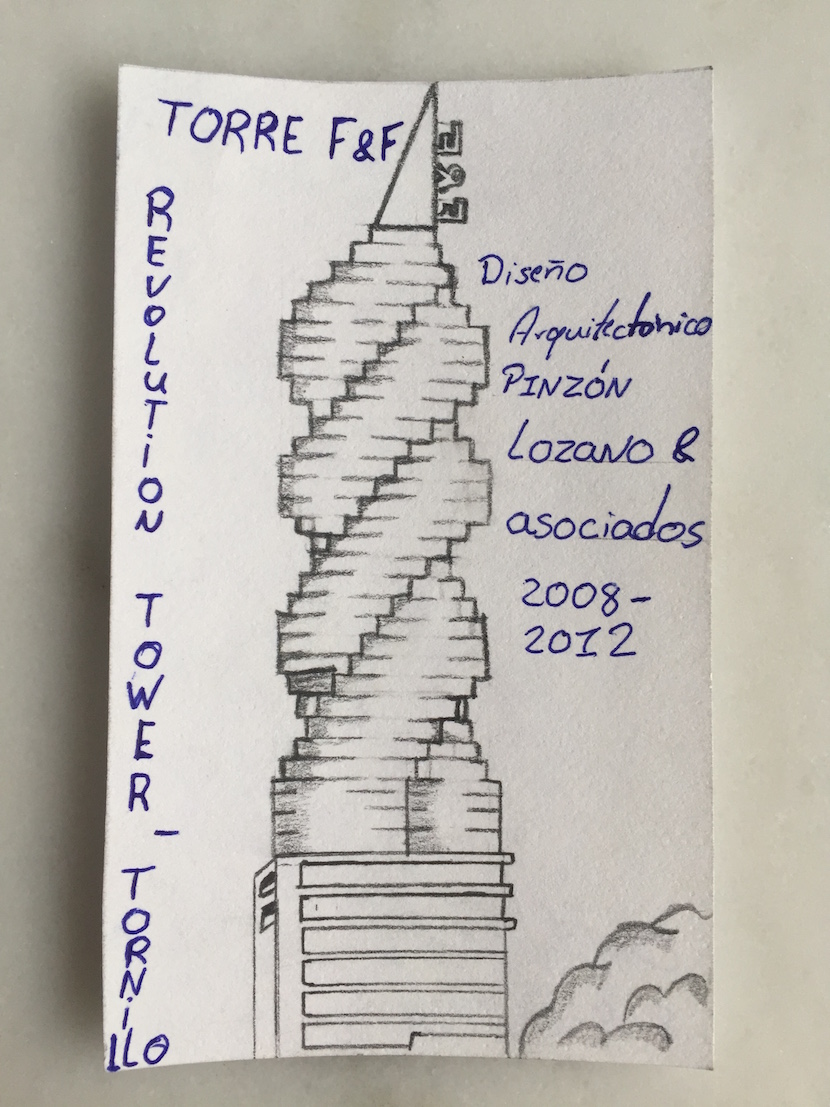 TORRE F&F
F&F
REVOLUTION TOWER_TORNILLO
Diseño
Arquitectónico
PINZÓN
LOZANO &
asociados
2008-
2012